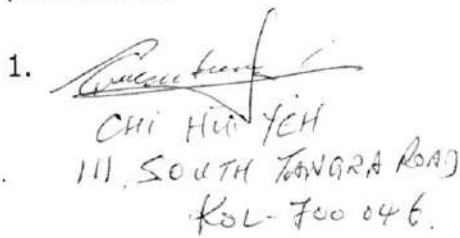 1.
CHI HUI YEH
111, SOUTH TANGRA ROAD
KOL-700 046.